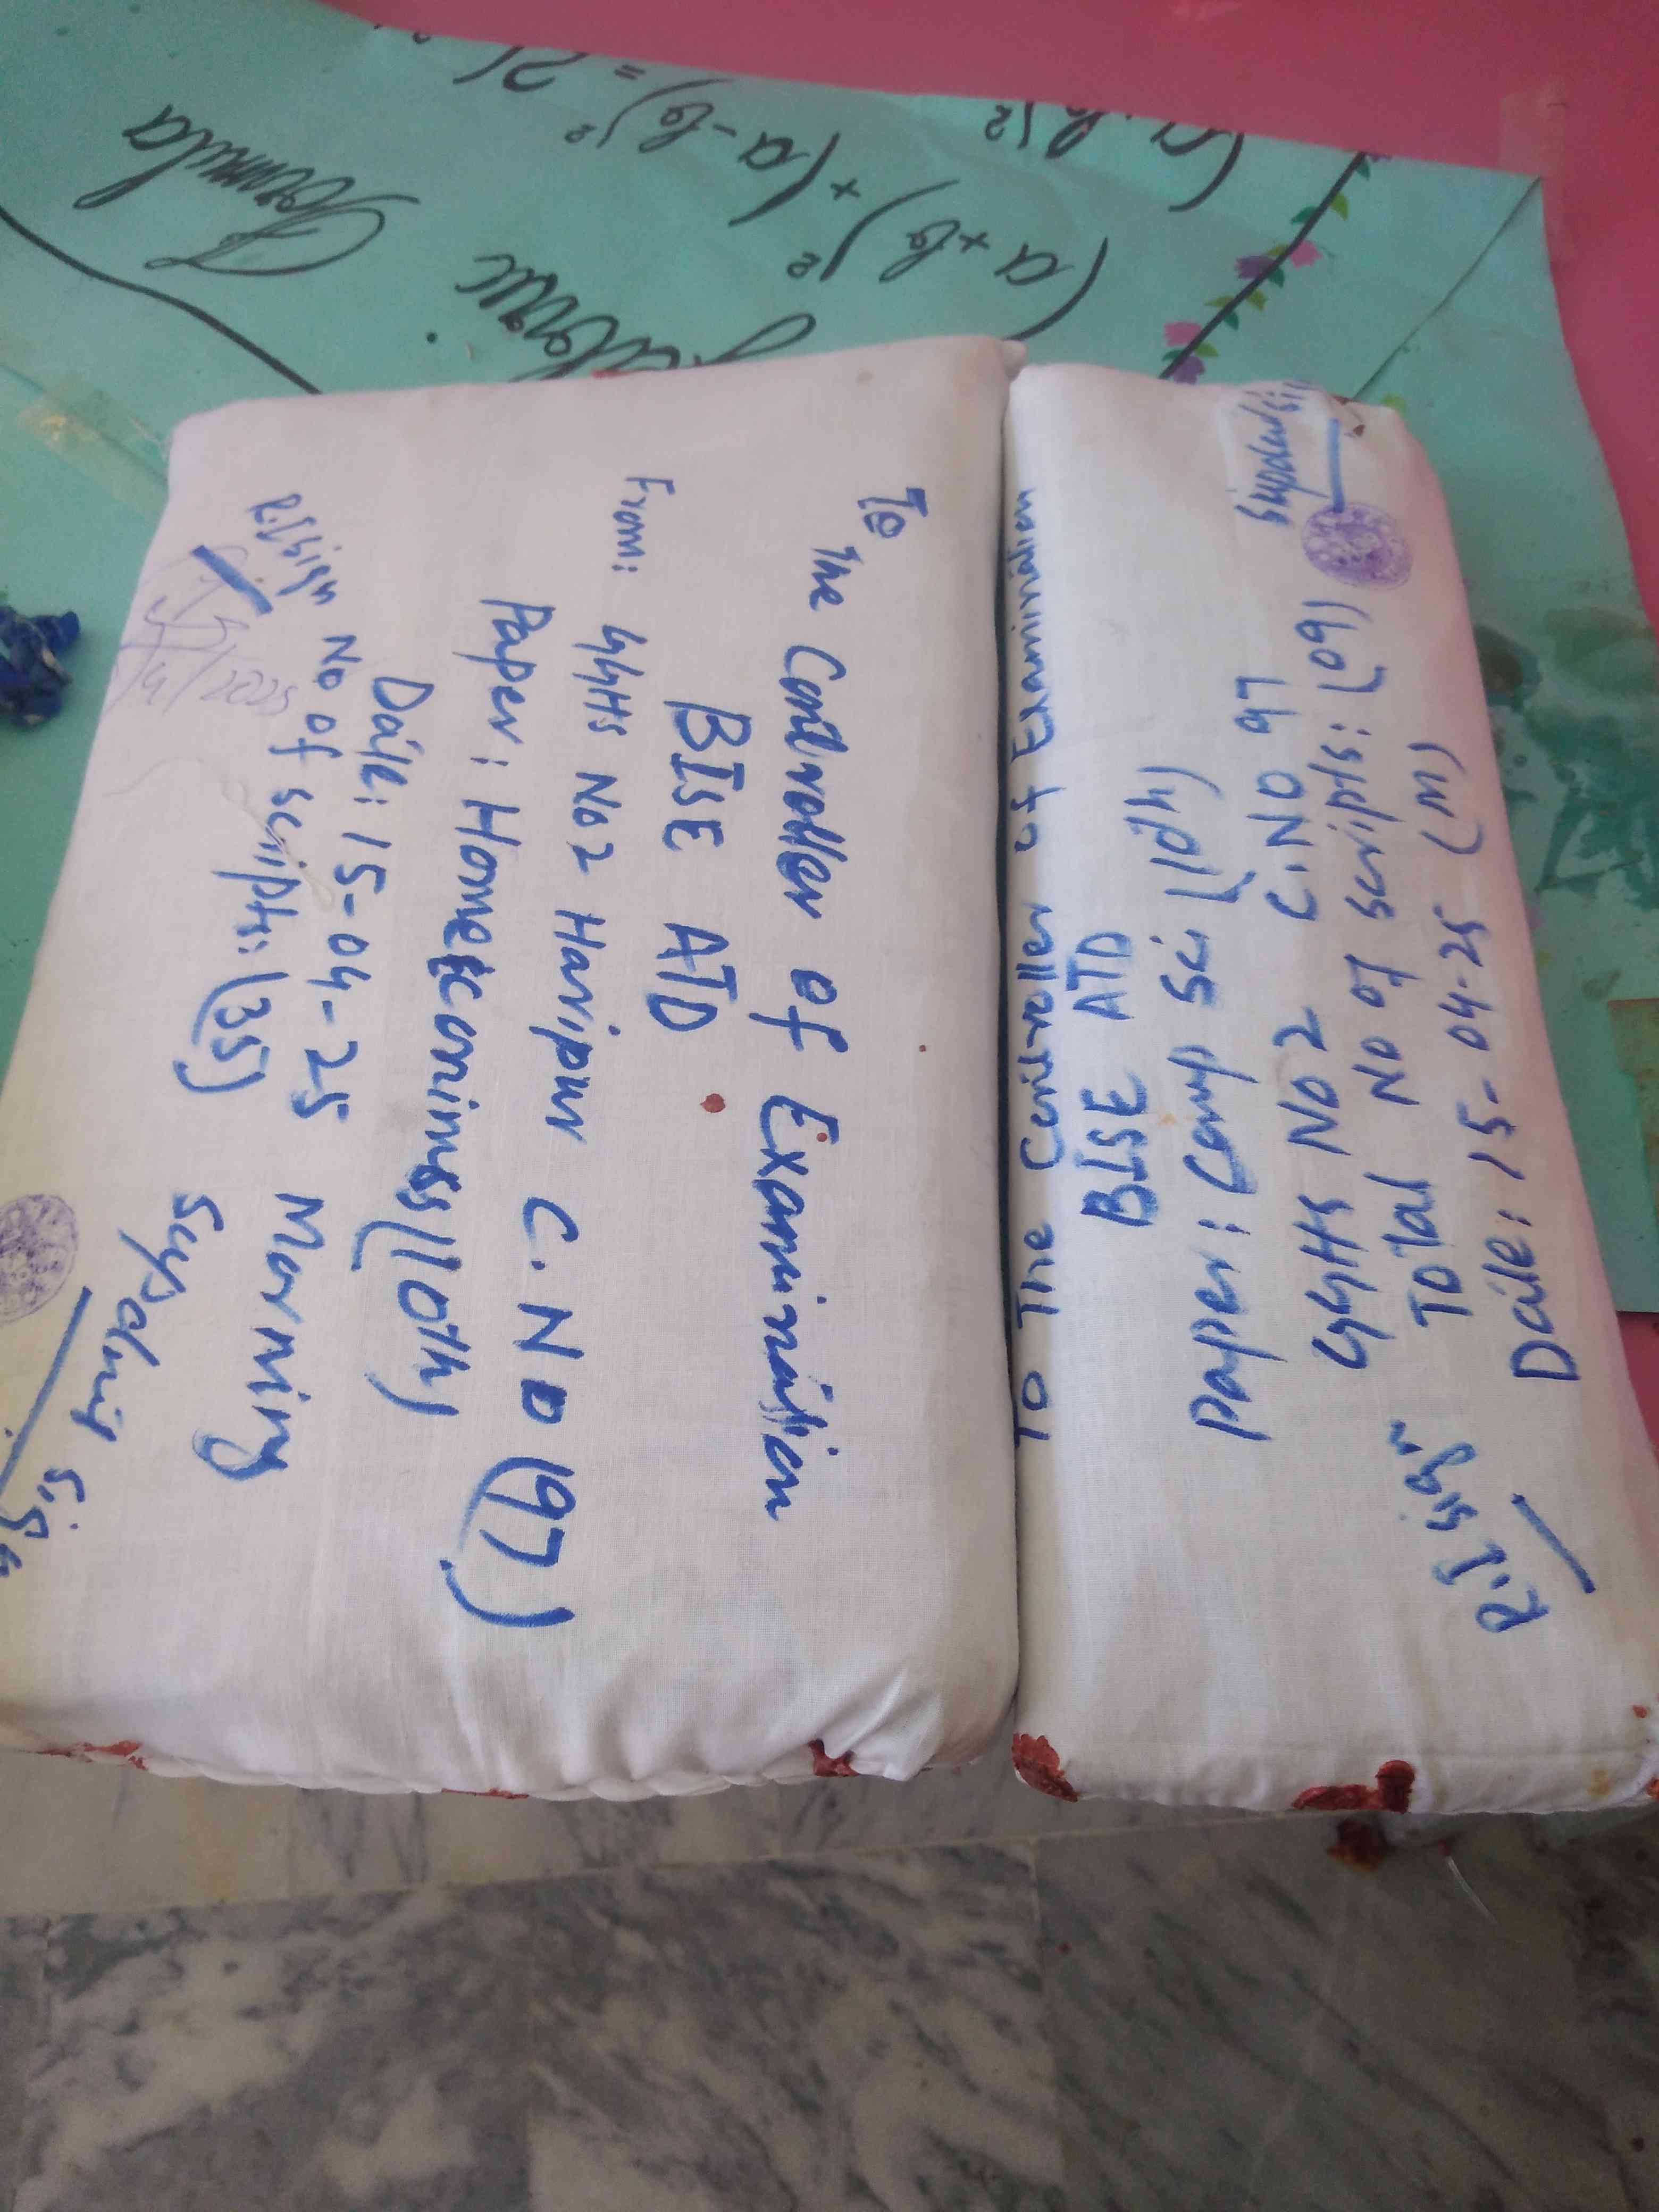 To
The Controller of Examinination
BISE ATD
From: GGHS No 2 Haripur C. No (97)
Paper: Home Economics (10th)
Date: 15-04-25 Morning
No of scripts: (35)
R.I sign
sign
To The Controller of Examinination
BISE ATD
Paper: Comp Sci (10th)
GGHS No 2 C.NO 97
Total No of scripts: (09)
Date: 15-04-25 (M)
R.I sign
Formula
(a+b)² + (a-b)² = 2(